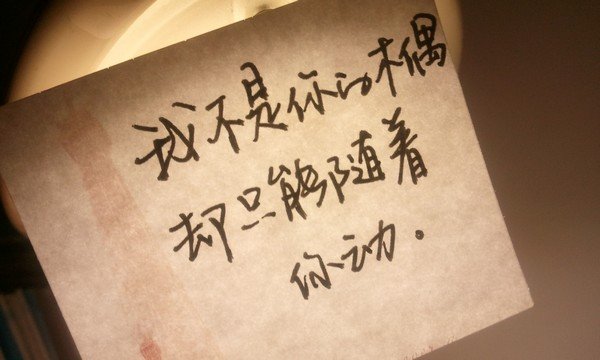 我不是你的木偶
却只能够随着
你动.